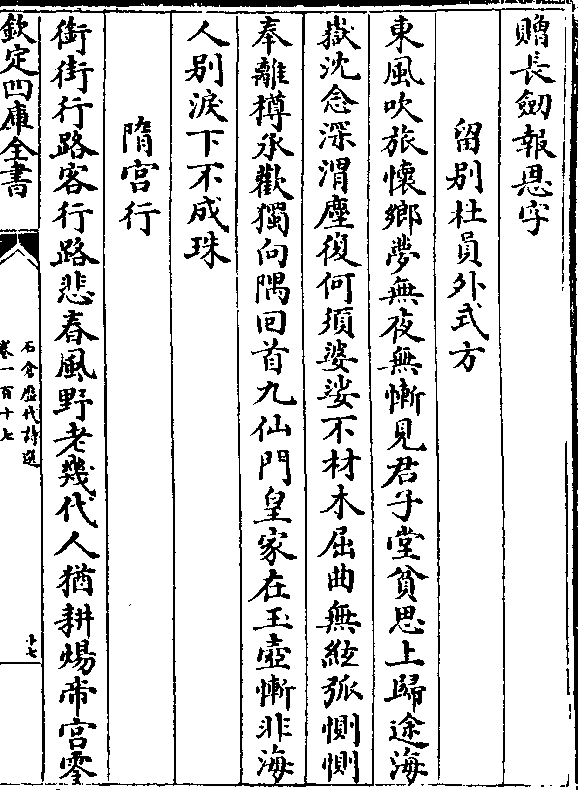 贈長劒報恩字
留别杜員外式方
東風吹旅懷鄉夢無夜無慚見君子堂貧思上歸途海
嶽沈念深渭塵復何須婆娑不材木屈曲無絃弧惻惻
奉離樽承歡獨向隅回首九仙門皇家在玉壺慚非海
人别淚下不成珠
隋宫行
街街行路客行路悲春風野老幾代人猶耕煬帝宫零
欽定四庫全書
石倉歴代詩選
卷一百十七
十七